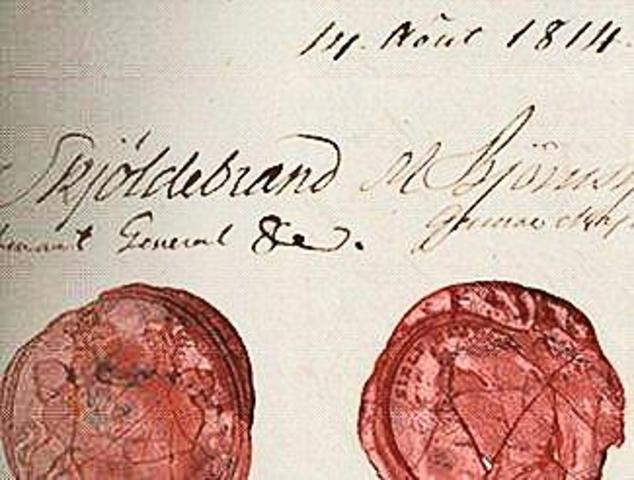 14. Août 1814.
Skjöldebrand M Björnst
General &c.